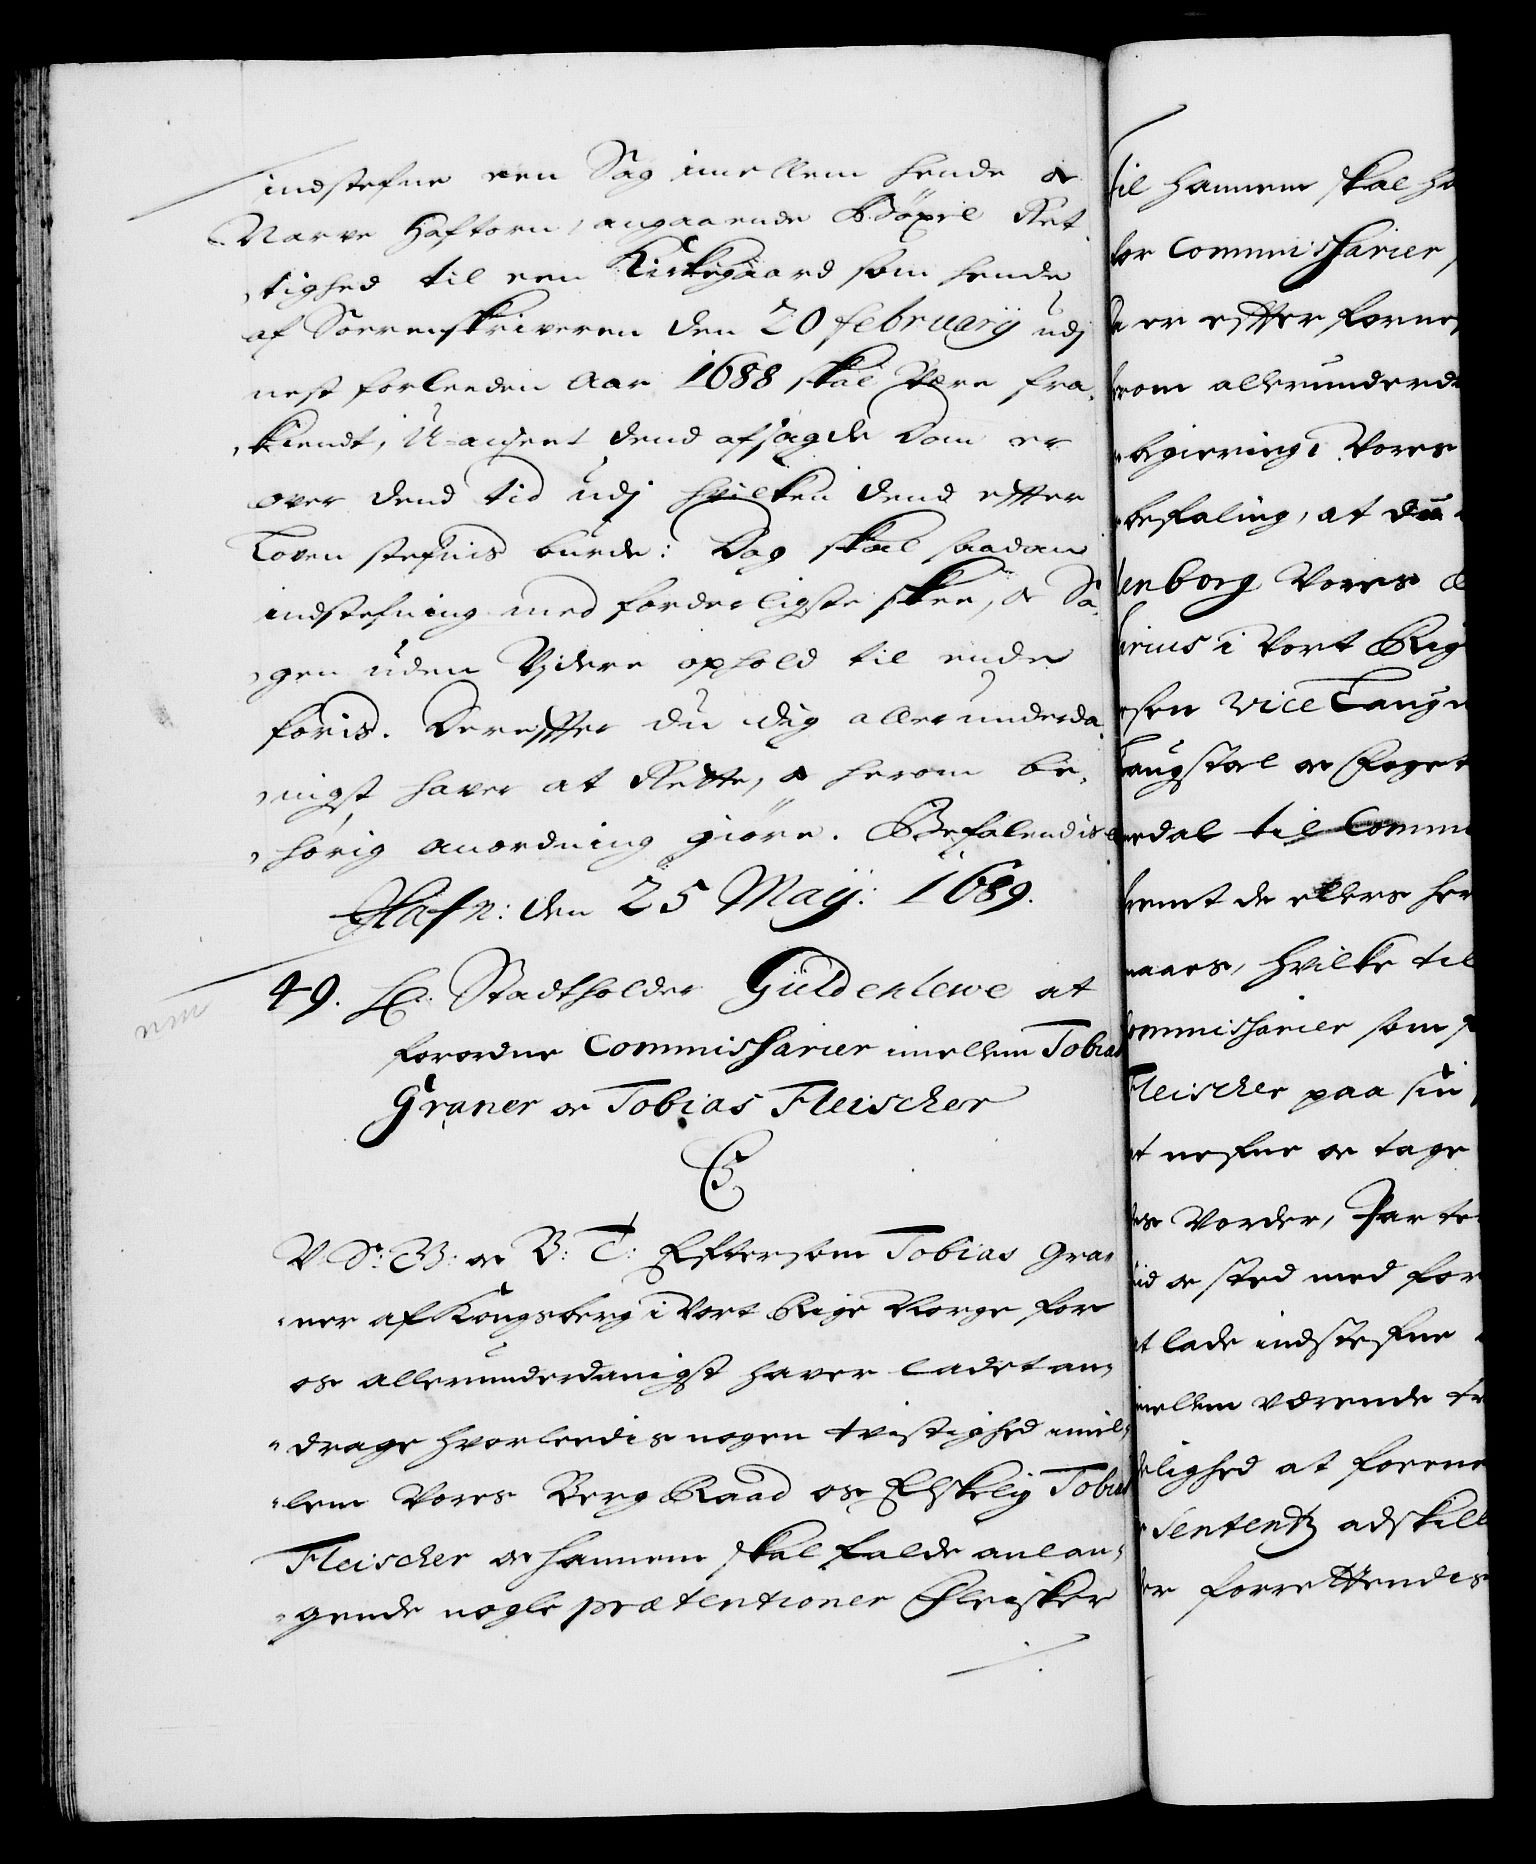 indstefne een Sag imellem hende oc
Narve Haftorn, angaaende Böxel Ret-
tighed til een Kirkegaard som hende
af Sorenskriveren den 20 february udj
nest forleeden Aar 1688 skal være fra-
kiendt, U-anseet dend afsagde Dom er
over dend tid udj hvilken dend efter
Loven stefnis burde: Dog skal saadan
indstefning med forderligste skee, oc Sa-
gen uden Vjdere ophold til ende
föris. Derefter du dig allerunderda-
nigst haver at Rette, oc herom be-
hörig anordning giöre. Befalendis
Hafn: den 25 Maij: 1689.
49. H: Stadtholder Güldenlewe at
forordne Commissarier imellem Tobias
Graner oc Tobias Fleischer
C5
V Sr: G: oc V: T: Eftersom Tobias Gra-
ner af Kongsberg i Vort Rige Norge for
os allerunderdanigst haver ladet an-
drage hvorleedis nogen tvistighed imel-
lem Vores Berg Raad os Elskelig Tobias
Fleischer oc hannem skal falde anlan-
gende nogle prætentioner Fleisker
til hannem skal ha
for Commissarier,
er efter forne
rom allerunderd
begiering Vores
befaling, at du
lenborg Vores
arius i Vort Rig
sen Vice Laug
Laugstol oc Foget
edal til Comm
emt de ellers her
aars, hvilke til
ommissarier som
Fleischer paa sin
at nefne oc tage
Vorder, Parte
tid oc sted med for
at lade indstefne
mellem værende tv
lighed at foeren
Sententz adskill
er forrettendis